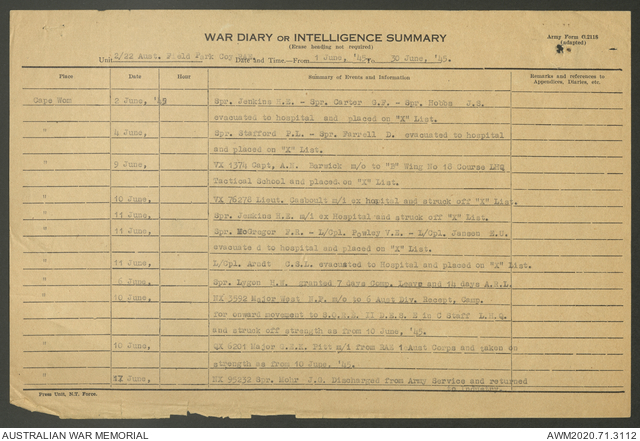 WAR DIARY OR INTELLIGENCE SUMMARY
(Erase heading not required)
Army Form C.2118
(adapted)
Unit 2/22 Aust. Field Park Coy RAE. Date and Time.—From 1 June, '45 To 30 June, '45.
Place Date Hour Summary of Events and Information Remarks and references to Appendices, Diaries, etc.
Cape Wom 2 June, '45 Spr. Jenkins R.E. - Spr. Carter G.F. - Spr. Hobbs J.S.
evacuated to hospital and placed on "X" List.
" 4 June, Spr. Stafford P.L. - Spr. Farrell D. evacuated to hospital
and placed on "X" List.
" 9 June, VX 1374 Capt. A.R. Barwick m/o to "B" Wing No 18 Course LHQ
Tactical School and placed on "X" List.
" 10 June, VX 76276 Lieut. Gasboult m/i ex hospital and struck off "X" List.
" 11 June, Spr. Jenkins R.E. m/i ex Hospital and struck off "X" List.
" 11 June, Spr. McGregor F.R. - L/Cpl. V.E. - L/Cpl. Jansen
evacuated to hospital and placed on "X" List.
" 11 June, L/Cpl. Arndt G.S.L. evacuated to Hospital and placed on "X" List.
" 6 June, Spr. Lygon granted 7 days Comp. Leave and 14 days A.R.L.
" 10 June, NX 3592 Major West m/o to 6 Aust Div. Recept. Camp
for onward movement to S.O.R.E. II E in C Staff L.H.Q.
and struck off strength as from 10 June, '45.
" 10 June, QX 6201 Major Pitt m/i from RAE 1 Aust Corps and taken on
strength as from 10 June, '45.
" 17 June, NX 95232 Spr. Mohr J.G. Discharged from Army Service and returned
to Industry.
From Unit, N.T. Force.
AUSTRALIAN WAR MEMORIAL
AWM2020.71.3112